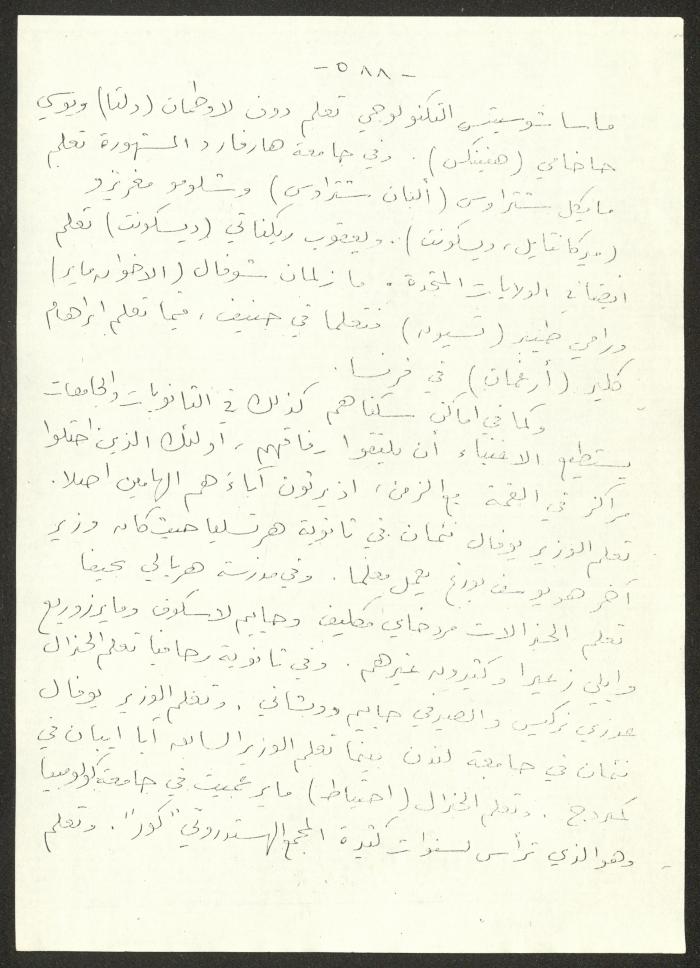 - ٥٨٨ -
ماساشوسيتس التكنولوجي تعلم دون لاوطمان (دلتا) ويوسي
حاخامي (هنيتكس). وفي جامعة هارفارد المشهورة تعلم
مايكل شتراوس (ألبان شتراوس) وشلومو مغريزو
(ميركانتايل، ديسكونت). ويعقوب ريكناتي (ديسكونت) تعلم
ايضا في الولايات المتحدة. ما زلمان شوفال (الاخوان ماير)
ورامي طيبر (تسيون) فتعلما في جنيف، فيما تعلم ابراهام
كلير (أرغمان) في فرنسا.
وكما في اماكن سكناهم كذلك في الثانويات والجامعات
يستطيع الاغنياء أن يلتقوا رفاقهم، أولئك الذين احتلوا
مراكز في القمة مع الزمن، اذ يرثون آباءهم الهامين اصلا.
تعلم الوزير يوفال نئمان في ثانوية هرتسليا حيث كان وزير
آخر هو يوسف بورغ يعمل معلما. وفي مدرسة هريالي بحيفا
تعلم الجنرالات مردخاي مكليف وحاييم لاسكوف ومايرزوريع
وايلي زعيرا وكثيرون غيرهم. وفي ثانوية رحافيا تعلم الجنرال
عوزي نركيس والصيرفي حاييم ودبشاني. وتعلم الوزير يوفال
نئمان في جامعة لندن بينما تعلم الوزير السابق آبا ايبان في
كمبردج. وتعلم الجنرال (احتياط) ماير عميت في جامعة كولومبيا
وهو الذي ترأس لسنوات كثيرة المجمع الهستدروتي "كور". وتعلم